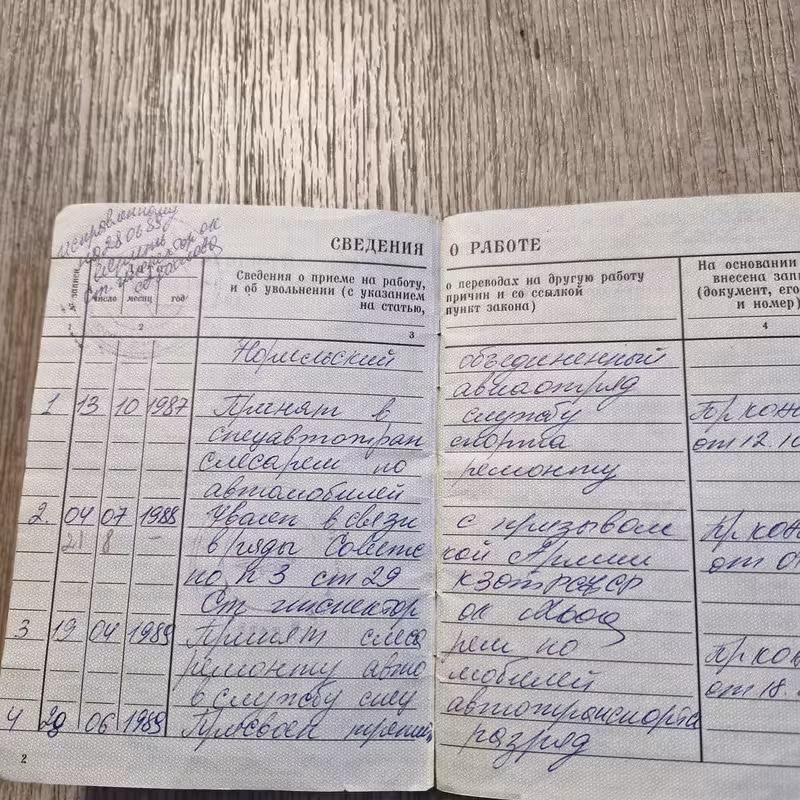 Исправленному
на 28 06 89
верить
Ст инспектор ок
СВЕДЕНИЯ О РАБОТЕ
№ записи
число месяц год
Сведения о приеме на работу, о переводах на другую работу
и об увольнении (с указанием причин и со ссылкой
на статью, пункт закона)
На основании
внесена запи
(документ, его
и номер)
2 3 4
Норильский объединенный
авиаотряд
1 13 10 1987 Принят в службу Пр
спецавтотран спорта от 12.10
слесарем по ремонту
автомобилей
2. 04 07 1988 Уволен в связи с призывом Пр
21 8 – в ряды Советс кой Армии от 0
по п 3 ст 29 КЗОТ РСФСР
Ст инспектор ок
3 19 04 1989 Принят слеса рем по Пр
ремонту авто мобилей от 18.
в службу спец автотранспорта
4 28 06 1989 Присвоен третий разряд
2